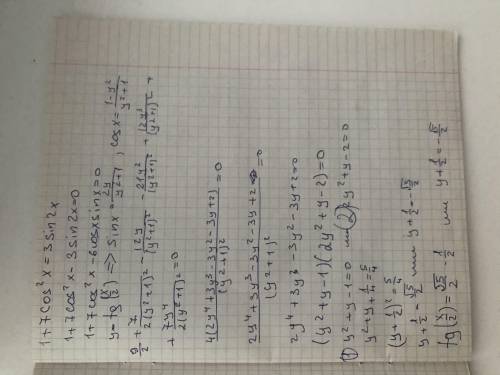 1+7cos²x = 3sin2x
1+7cos²x - 3sin2x=0
1+7cos²x - 6cosx sinx=0
y=tg(x/2) => sinx = 2y/(y²+1), cosx = (1-y²)/(y²+1)
9/2 + 7/(2(y²+1)²) - 12y/(y²+1)² - 21y²/(y²+1)² + 12y³/(y²+1)² +
+ 7y⁴/(2(y²+1)²) = 0
4(2y⁴+3y³-3y²-3y+2)/(y²+1)² = 0
(2y⁴+3y³-3y²-3y+2)/(y²+1)² = 0
2y⁴+3y³-3y²-3y+2=0
(y²+y-1)(2y²+y-2)=0
① y²+y-1=0 или ② 2y²+y-2=0
y²+y+1/4=5/4
(y+1/2)²=5/4
y+1/2=√5/2 или y+1/2=-√5/2
tg(x/2)=√5/2-1/2 или y+1/2=-√5/2